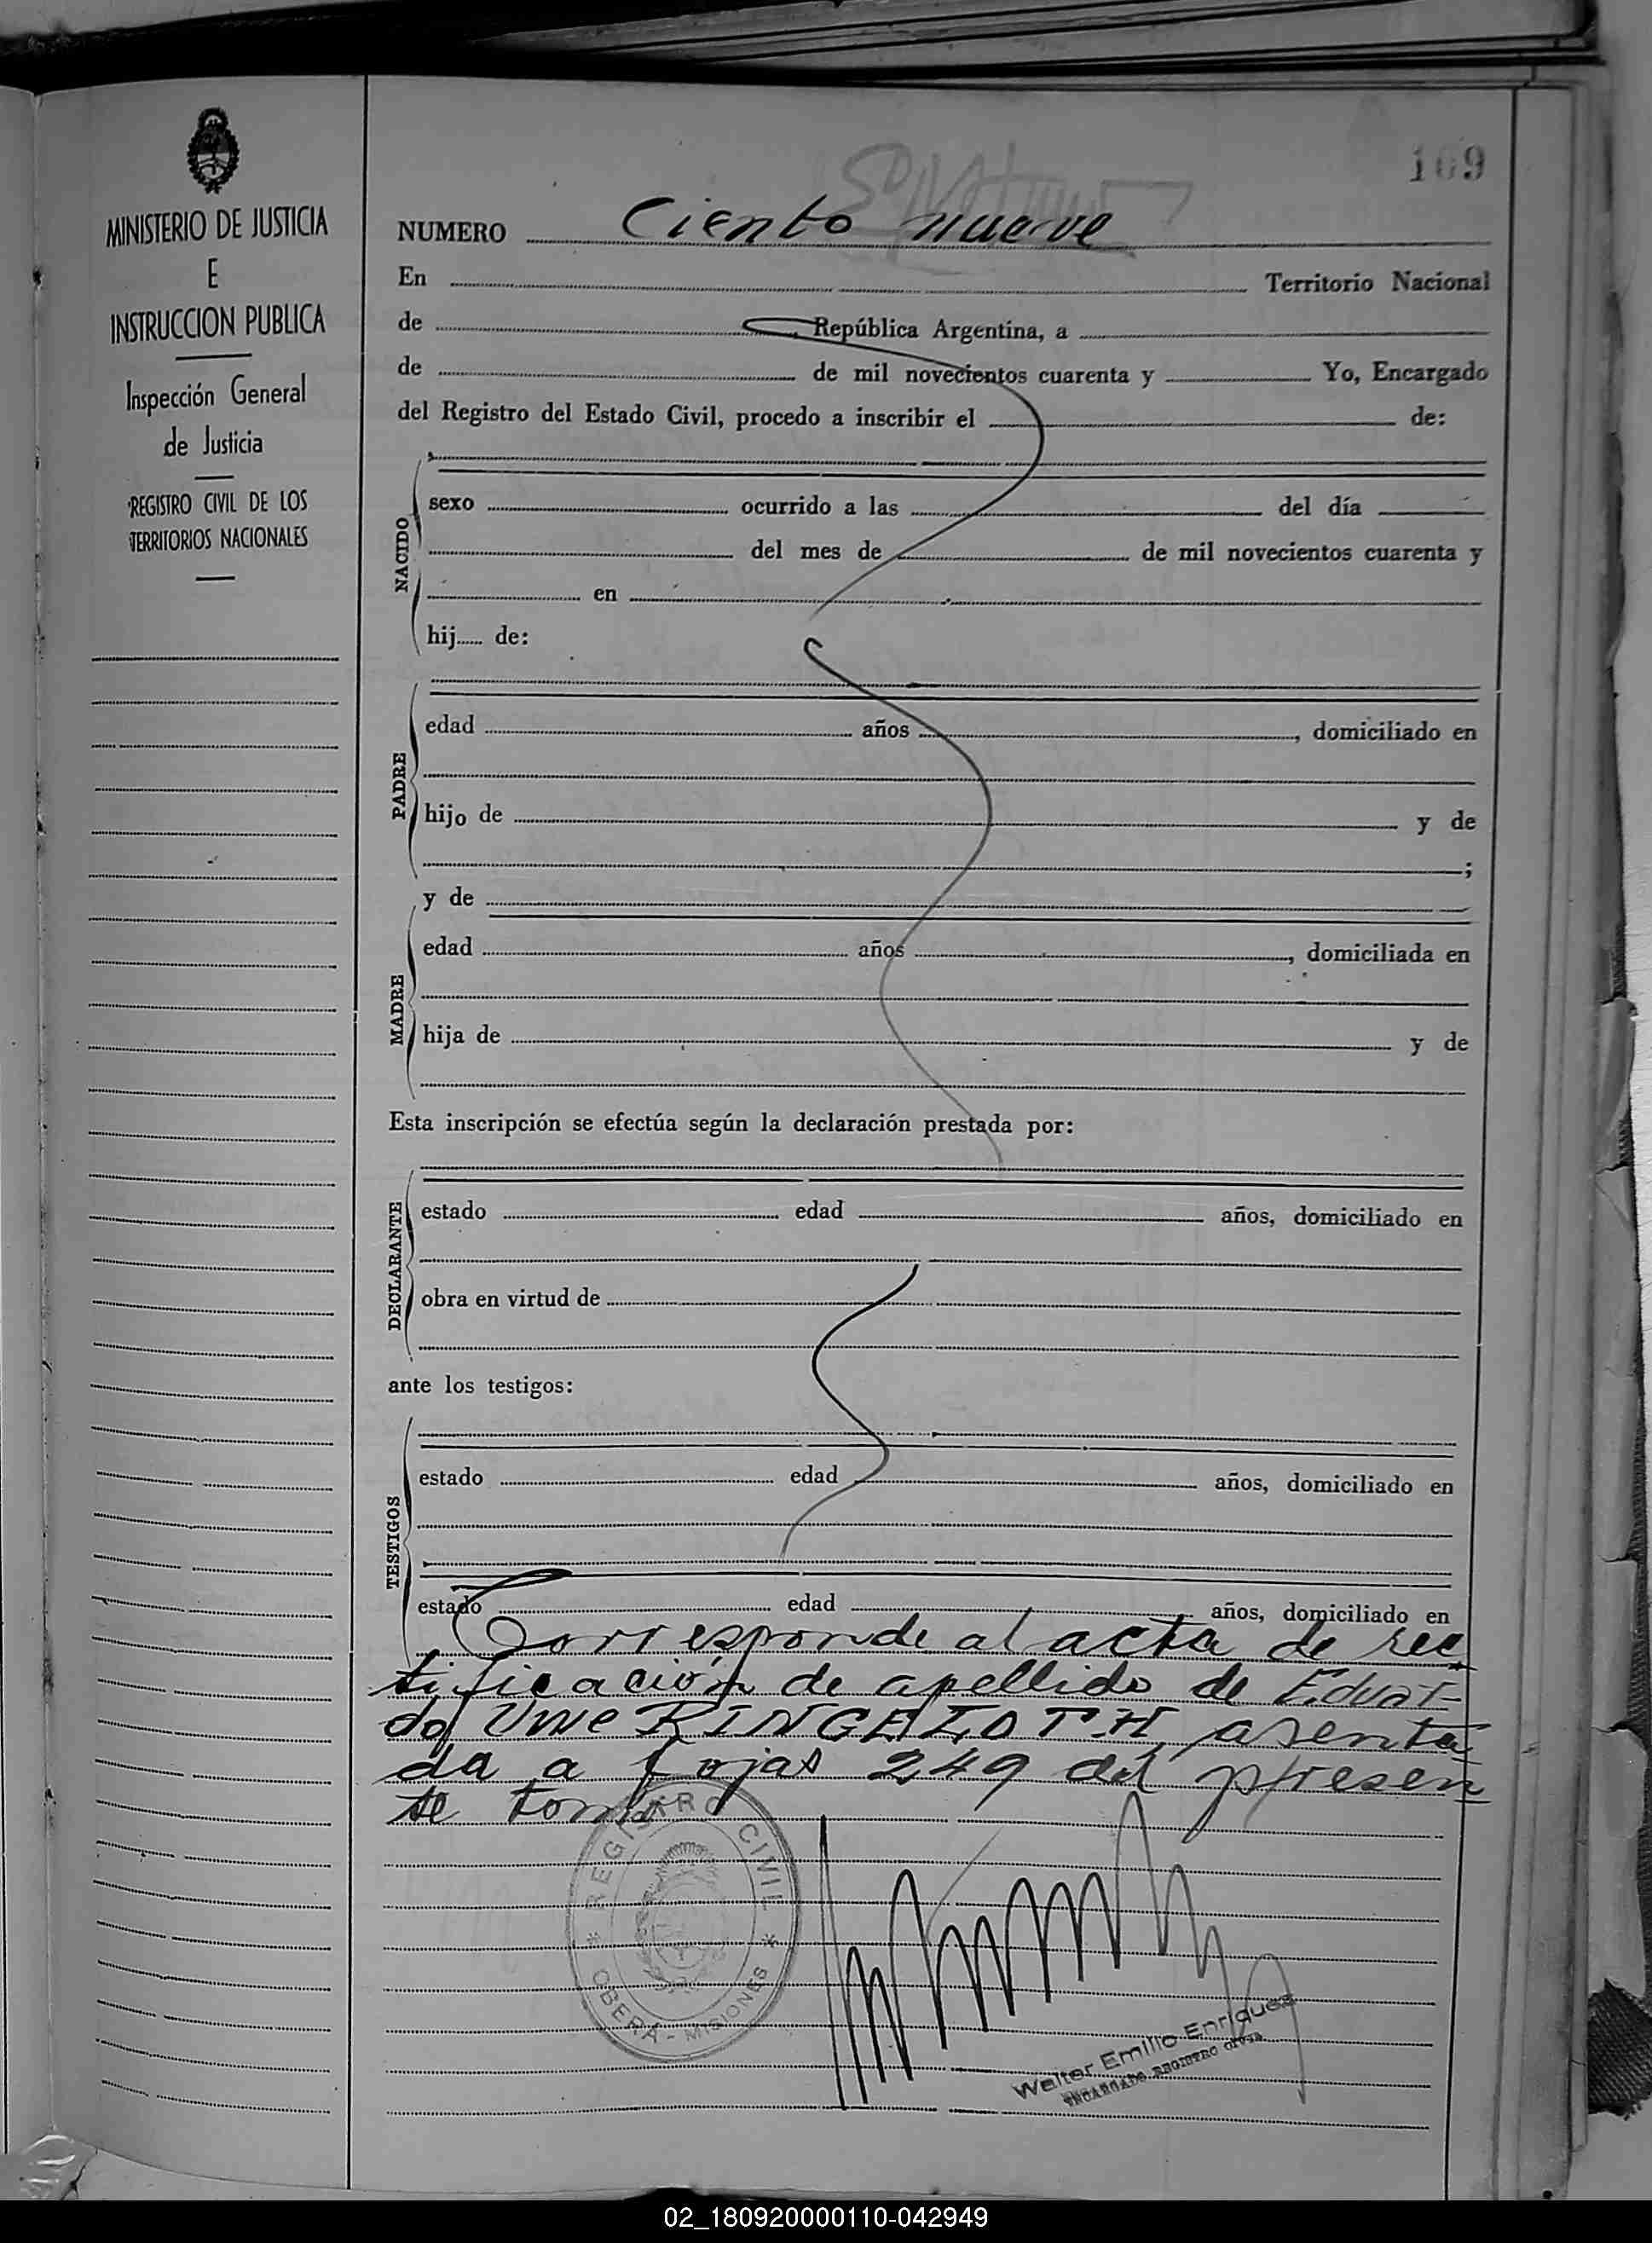 109
MINISTERIO DE JUSTICIA
E
INSTRUCCION PUBLICA
Inspección General
de Justicia
REGISTRO CIVIL DE LOS
TERRITORIOS NACIONALES
NUMERO Ciento nueve
En Territorio Nacional
de República Argentina, a
de de mil novecientos cuarenta y Yo, Encargado
del Registro del Estado Civil, procedo a inscribir el de:
NACIDO
sexo ocurrido a las del día
del mes de de mil novecientos cuarenta y
en
hij...... de:
PADRE
edad años , domiciliado en
hijo de y de
;
y de
MADRE
edad años , domiciliada en
hija de y de
Esta inscripción se efectúa según la declaración prestada por:
DECLARANTE
estado edad años, domiciliado en
obra en virtud de
ante los testigos:
TESTIGOS
estado edad años, domiciliado en
estado edad años, domiciliado en
Corresponde al acta de rec
tificación de apellido de Eduar-
do Uwe asenta
da a fojas 249 del presen
te tomo
REGISTRO CIVIL
OBERÁ - MISIONES
Walter Emilio Enriquez
ENCARGADO REGISTRO CIVIL
02_180920000110-042949